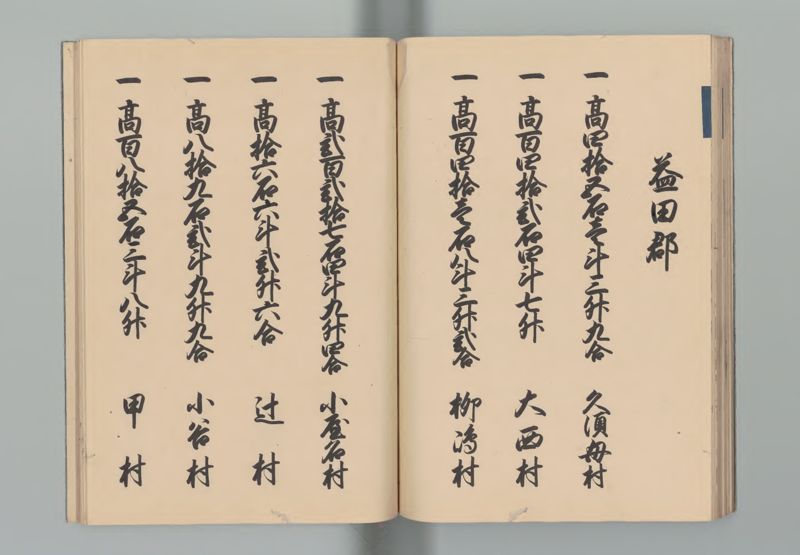 益田郡
一 高四拾五石壱斗三升九合 久須母村
一 高百四拾弐石四斗七升 大西村
一 高百四拾壱石八斗三升弐合 柳嶋村
一 高弐百弐拾七石四斗九升四合 小屋名村
一 高拾六石六斗弐升六合 辻村
一 高八拾九石弐斗九升九合 小谷村
一 高百八拾五石三斗八升 甲村